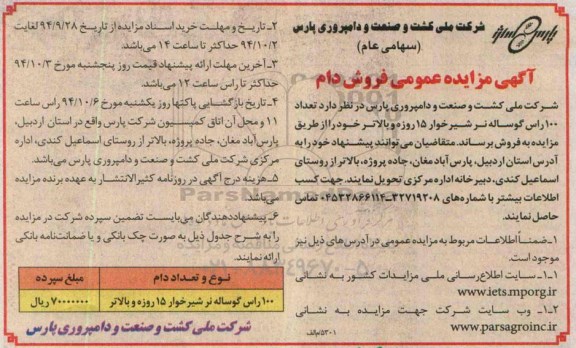 شرکت ملی کشت و صنعت و دامپروری پارس
(سهامی عام)
آگهی مزایده عمومی فروش دام
شرکت ملی کشت و صنعت و دامپروری پارس در نظر دارد تعداد
۱۰۰ راس گوساله نر شیرخوار ۱۵ روزه و بالاتر خود را از طریق
مزایده به فروش برساند. متقاضیان می توانند پیشنهاد خود را به
آدرس استان اردبیل، پارس آباد مغان، جاده پروژه، بالاتر از روستای
اسماعیل کندی، دبیرخانه اداره مرکزی تحویل نمایند. جهت کسب
اطلاعات بیشتر با شماره های ۳۲۷۱۹۲۰۸-۰۴۵۳۲۸۶۶۱۱۴ تماس
حاصل نمایند.
۱-ضمناً اطلاعات مربوط به مزایده عمومی در آدرس های ذیل نیز
موجود است.
۱-۱- سایت اطلاع رسانی ملی مزایدات کشور به نشانی
www.iets.mporg.ir
۱-۲- وب سایت شرکت جهت مزایده به نشانی
www.parsagroinc.ir
۲-تاریخ و مهلت خرید اسناد مزایده از تاریخ ۹۴/۹/۲۸ لغایت
۹۴/۱۰/۲ حداکثر تا ساعت ۱۴ می باشد.
۳-آخرین مهلت ارائه پیشنهاد قیمت روز پنجشنبه مورخ ۹۴/۱۰/۳
حداکثر تا راس ساعت ۱۲ می باشد.
۴-تاریخ بازگشایی پاکتها روز یکشنبه مورخ ۹۴/۱۰/۶ راس ساعت
۱۱ و محل آن اتاق کمیسیون شرکت پارس واقع در استان اردبیل،
پارس آباد مغان، جاده پروژه، بالاتر از روستای اسماعیل کندی، اداره
مرکزی شرکت ملی کشت و صنعت و دامپروری پارس می باشد.
۵-هزینه درج آگهی در روزنامه کثیرالانتشار به عهده برنده مزایده
می باشد.
۶-پیشنهاددهندگان می بایست تضمین سپرده شرکت در مزایده
را به شرح جدول ذیل به صورت چک بانکی و یا ضمانت نامه بانکی
ارائه نمایند.
نوع و تعداد دام مبلغ سپرده
۱۰۰ راس گوساله نر شیرخوار ۱۵ روزه و بالاتر ۷۰۰۰۰۰۰۰ ریال
شرکت ملی کشت و صنعت و دامپروری پارس
۵۳۰۱/م الف